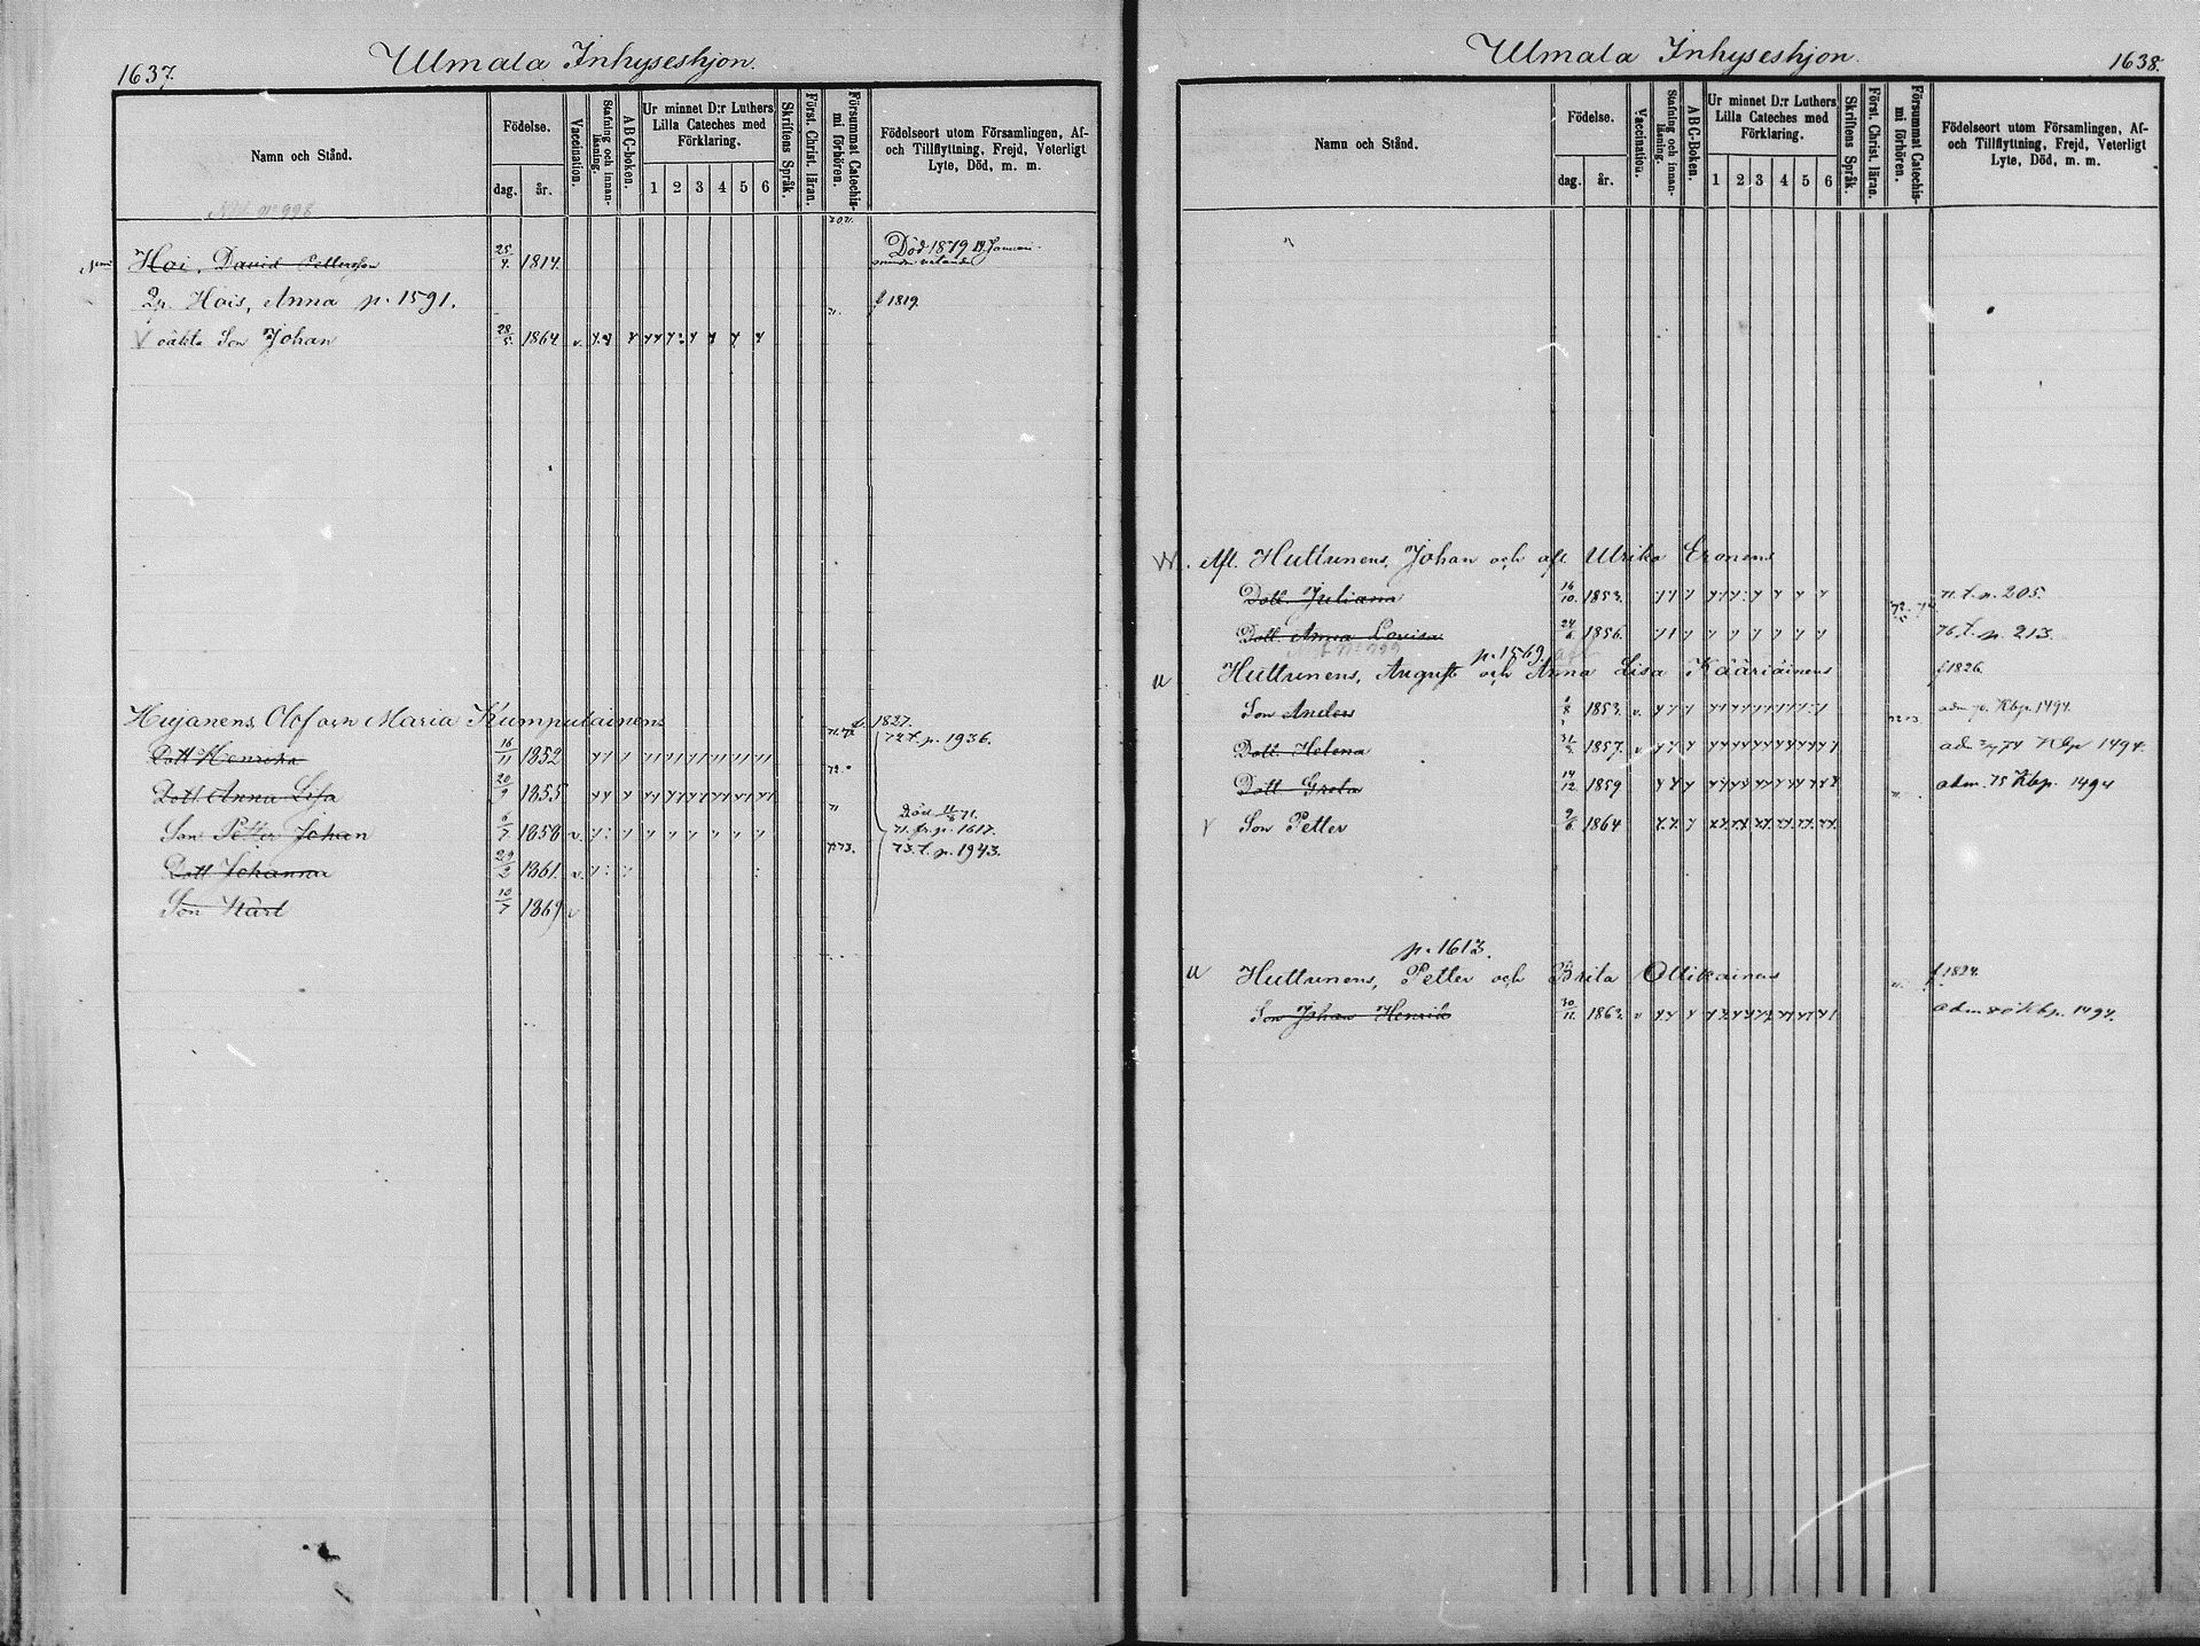 1637.
Ulmala Inhyseshjon.
Namn och Stånd.
Födelse.
dag.
år.
Vaccination.
Stafning och innan-läsning.
ABC-boken.
Ur minnet D:r Luthers Lilla Cateches med Förklaring.
1 2 3 4 5 6
Skriftens Språk.
Först. Christ. läran.
Försummat Catechismi förhören.
Födelseort utom Församlingen, Af- och Tillflyttning, Frejd, Veterligt Lyte, Död, m. m.
Hoi, David Pettersson 25/4. 1814. Död 1879 Januari
Hois, Anna p. 1591. f 1819.
oäkta Son Johan 28/5. 1864 v.
Hujanens, Olof och Maria Kumpulainens f. 1827.
Dott Henrika 16/11 1852 72 t. p. 1936.
Dott. Anna Lisa 20/9 1855
Son Petter Johan 6/7 1858 v. Död 71.
71. fr. p. 1617.
Dott Johanna 29/2 1861. v. 73. t. p. 1943.
Son Karl 10/7 1869 v
1638.
Ulmala Inhyseshjon.
Namn och Stånd.
Födelse.
dag.
år.
Vaccination.
Stafning och innan-läsning.
ABC-Boken.
Ur minnet D:r Luthers Lilla Cateches med Förklaring.
1 2 3 4 5 6
Skriftens Språk.
Först. Christ. läran.
Försummat Catechismi förhören.
Födelseort utom Församlingen, Af- och Tillflyttning, Frejd, Veterligt Lyte, Död, m. m.
Afl. Huttunens, Johan och afl. Ulrika Eronens
Dott. Juliana 16/10. 1853. 71. t. p. 205.
Dott. Anna Lovisa 24/6 1856. 76. t. p. 213.
p. 1569.
Huttunens, August och Anna Lisa Kääriäinens f 1826.
Son Anders 1853. v. adm. p. Kbp. 1494.
Dott. Helena 31/5 1857. v adm 74 Kbp 1494.
Dott Greta 14/12 1859 adm. 75 Kbp. 1494
Son Petter 9/6 1864
p. 1613.
Huttunens, Petter och Brita Ollikainens f 1824.
Son Johan Henrik 30/11. 1863. v adm 80 Kbp. 1494.